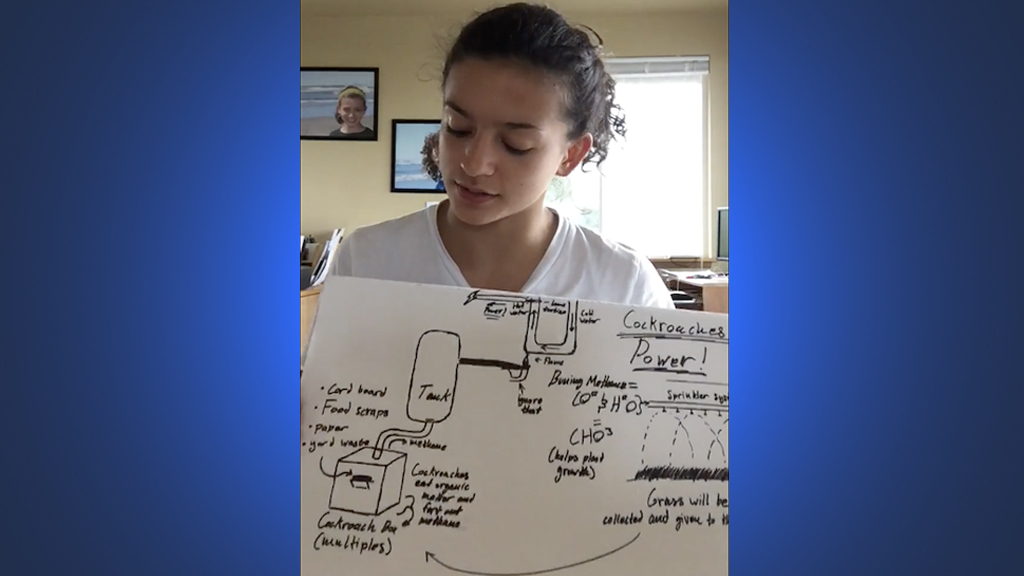 Cockroaches
Power!
Power!
Hot
water
Cold
water
← Flame
Ignore
that
Tank
• Card board
• Food scraps
• paper
• yard waste
methane
Cockroaches
eat organic
matter and
fart out
methane
Cockroach Box
(multiples)
Burning Methane =
CHO³
(helps plant
growth)
sprinkler sys
Grass will be
collected and given to th